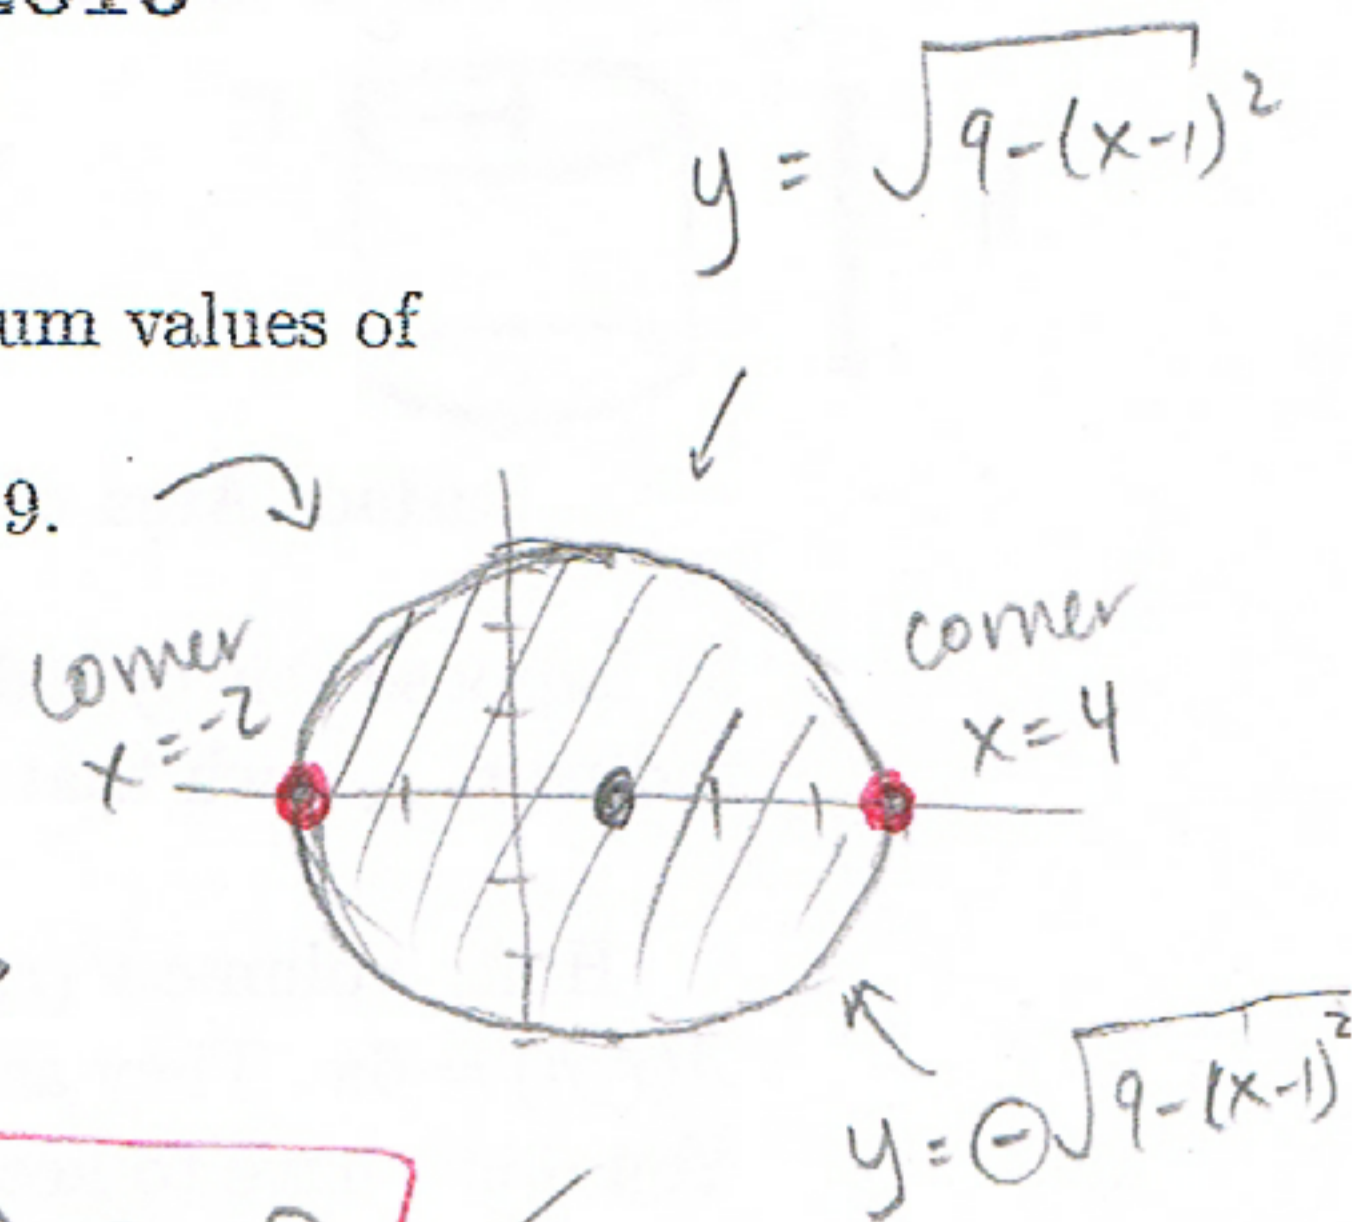 y = √9-(x-1)²
um values of
9.
corner
x = -2
corner
x = 4
y = -√9-(x-1)²